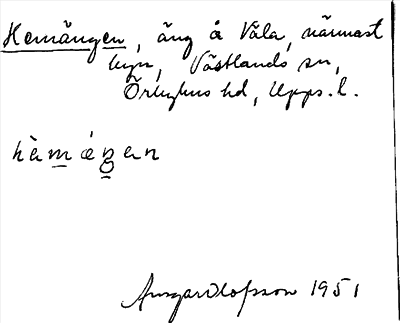 Hemängen, äng å Våla, närmast
byn, Västlands sn,
Örbyhus hd, Upps. l.
hèmáŋan
Ansgar Olofsson 1951